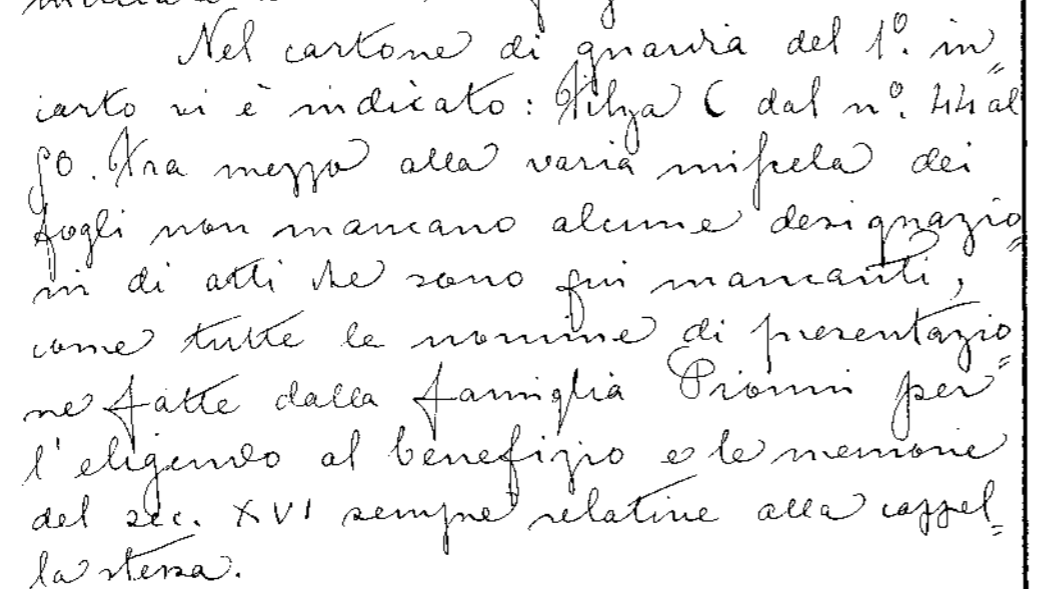 Nel cartone di guardia del 1º. in=
carto vi è indicato: Filza C dal nº. 44 al
50. Fra mezzo alla varia miscela dei
fogli non mancano alcune designazio=
ni di atti che sono qui mancanti,
come tutte le nomine di presentazio=
ne fatte dalla famiglia per
l'eligendo al benefizio e le memorie
del sec. XVI sempre relative alla cappel=
la stessa.